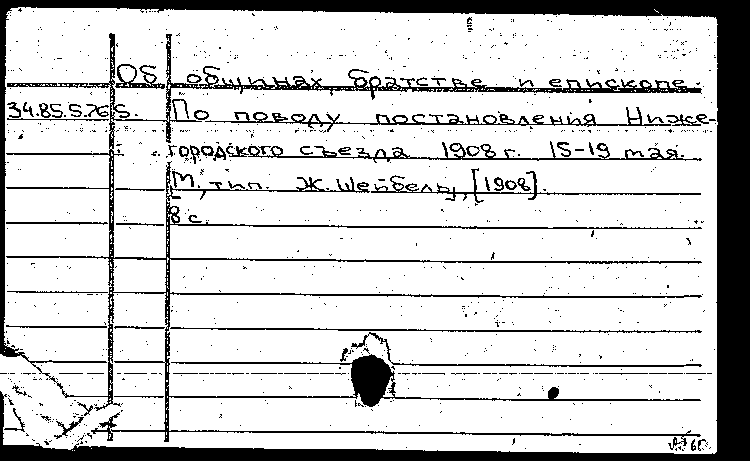 Об общинах, братстве и епископе.
34.85.5.765. По поводу постановления Ниже-
городского съезда 1908 г. 15-19 мая.
М., тип. Ж. Шейбель, [1908].
8 с.